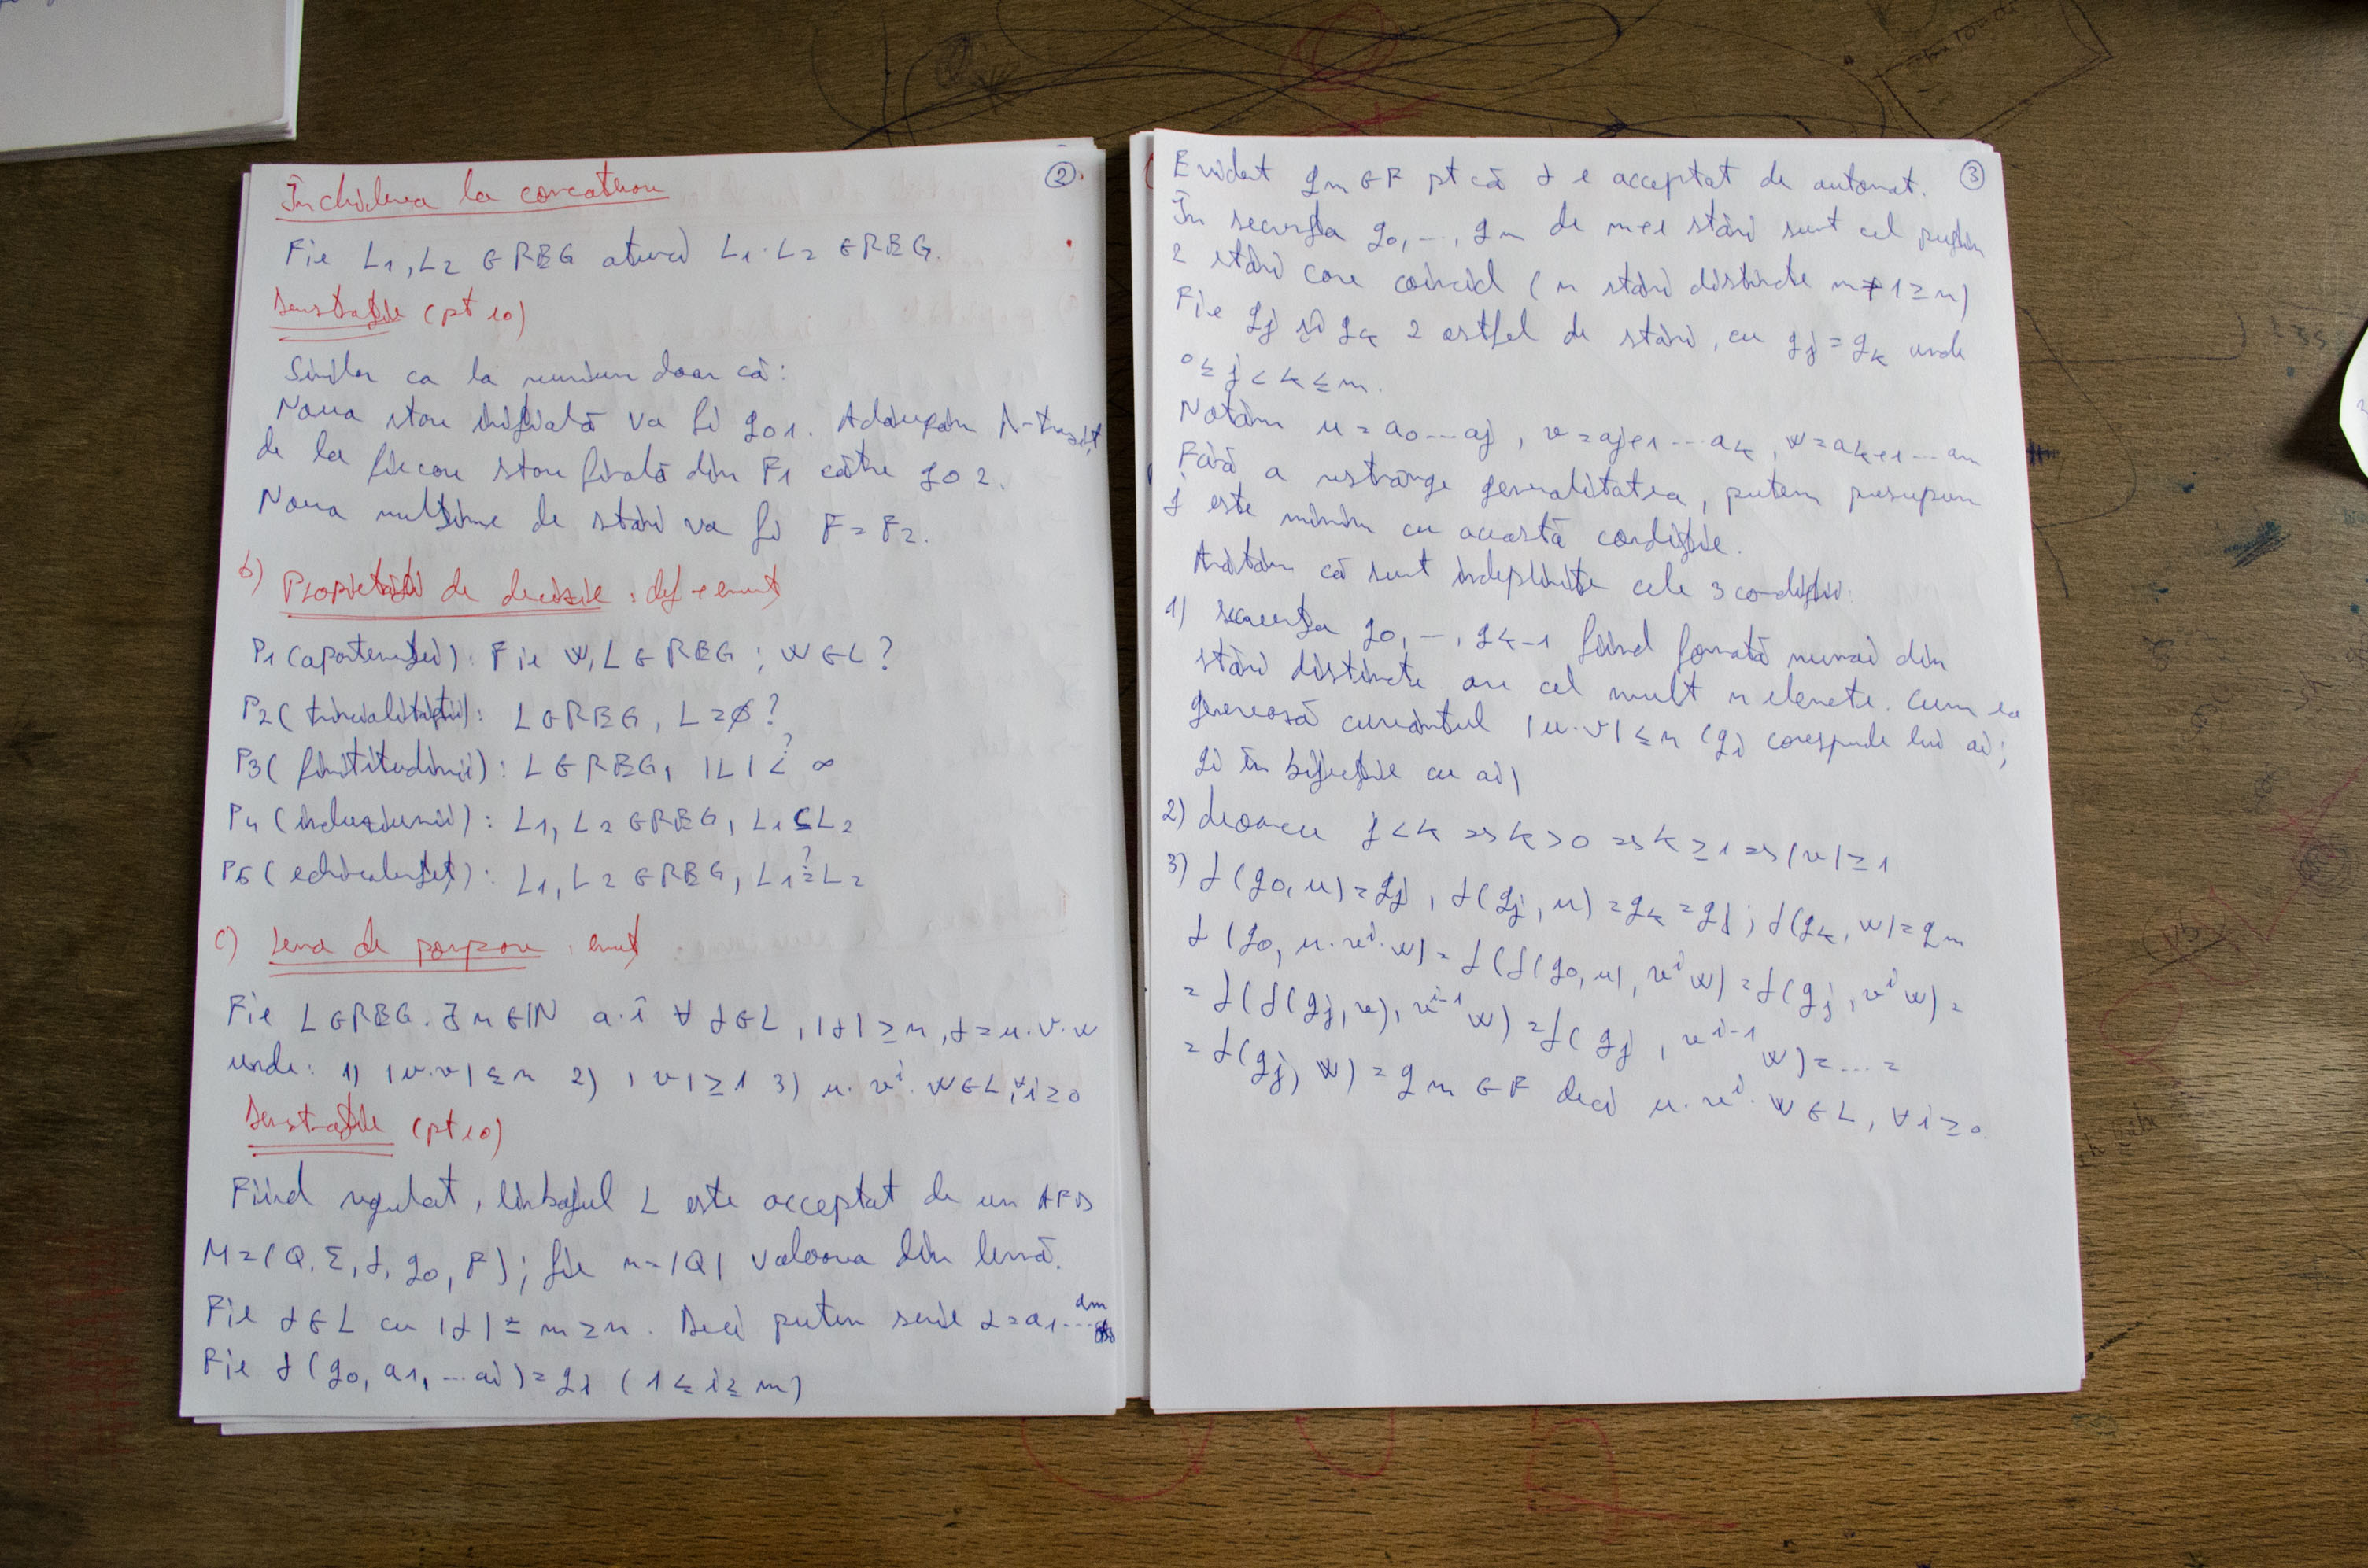 ②
Închiderea la concatenare
Fie L1, L2 ∈ REG atunci L1 · L2 ∈ REG.
Demstrație (pt 10)
Similar ca la reuniune doar că:
Noua stare inițială va fi q01. Adăugăm λ-tranziț
de la fiecare stare finală din F1 către q02.
Noua mulțime de stări va fi F = F2.
b) Proprietăți de decizie : def + enunț
P1 (apartenenței): Fie w, L ∈ REG ; w ∈ L?
P2 (trivialității): L ∈ REG, L = ∅?
P3 (finititudinii): L ∈ REG, |L| <? ∞
P4 (incluziunii): L1, L2 ∈ REG, L1 ⊆ L2
P5 (echivalenței): L1, L2 ∈ REG, L1 =? L2
c) Lema de pompare : enunț
Fie L ∈ REG. ∃ n ∈ ℕ a.î ∀ α ∈ L, |α| ≥ n, α = u·v·w
unde: 1) |u·v| ≤ n 2) |v| ≥ 1 3) u·v^i·w ∈ L, ∀i ≥ 0
Demstrație (pt 10)
Fiind regulat, limbajul L este acceptat de un AFD
M = (Q, Σ, δ, q0, F); fie n = |Q| valoarea din lemă.
Fie α ∈ L cu |α| = m ≥ n. Deci putem scrie α = a1...am
Fie δ(q0, a1, ...ai) = qi (1 ≤ i ≤ m)
③
Evident qm ∈ F pt că α e acceptat de automat.
În secvența q0, ..., qm de m+1 stări sunt cel puțin
2 stări care coincid (n stări distincte m+1 ≥ n)
Fie qj și qk 2 astfel de stări, cu qj = qk unde
0 ≤ j < k ≤ m.
Notăm u = a0...aj, v = aj+1...ak, w = ak+1...am
Fără a restrânge generalitatea, putem presupune
j este minim cu această condiție.
Arătăm că sunt îndeplinite cele 3 condiții:
1) secvența q0, ..., qk-1 fiind formată numai din
stări distincte are cel mult n elemente. Cum ea
generează cuvântul |u·v| ≤ n (qi corespunde lui ai;
qi în bijecție cu ai)
2) deoarece j < k => k > 0 => k ≥ 1 => |v| ≥ 1
3) δ(q0, u) = qj, δ(qj, u) = qk = qj; δ(qk, w) = qm
δ(q0, u·v^i·w) = δ(δ(q0, u), v^i w) = δ(qj, v^i w) =
= δ(δ(qj, v), v^i-1 w) = δ(qj, v^i-1 w) = ... =
= δ(qj, w) = qm ∈ F deci u·v^i·w ∈ L, ∀ i ≥ 0.